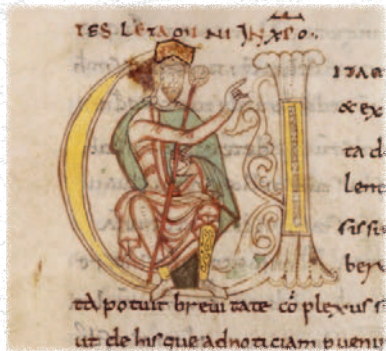 TES LETAOUNI IN XPO.
ITAE
& ex
ta d
lenc
sissi
ber
ta potuit breui tate cō plexus s
ut de his que ad noticiam puenu